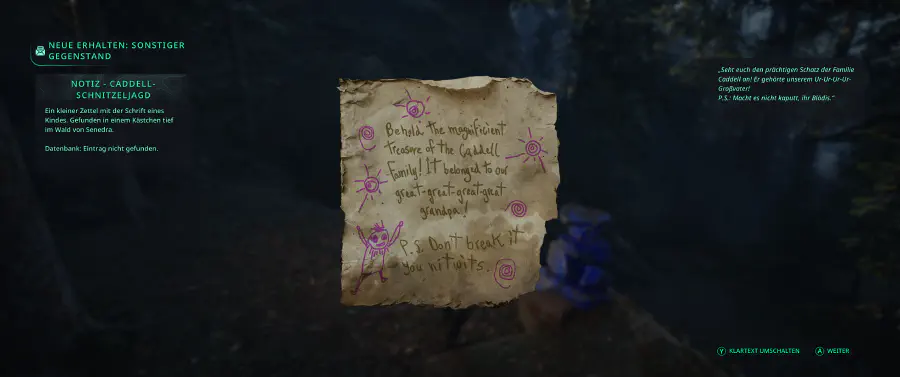 NEUE ERHALTEN: SONSTIGER
GEGENSTAND
NOTIZ - CADDELL-
SCHNITZELJAGD
Ein kleiner Zettel mit der Schrift eines
Kindes. Gefunden in einem Kästchen tief
im Wald von Senedra.
Datenbank: Eintrag nicht gefunden.
Behold the magnificient
treasure of the Caddell
Family! IT belonged to our
great-great-great-great
grandpa!
P.S. Don't break it
you nitwits.
„Seht euch den prächtigen Schatz der Familie
Caddell an! Er gehörte unserem Ur-Ur-Ur-Ur-
Großvater!
P.S.: Macht es nicht kaputt, ihr Blödis.“
Y KLARTEXT UMSCHALTEN
A WEITER